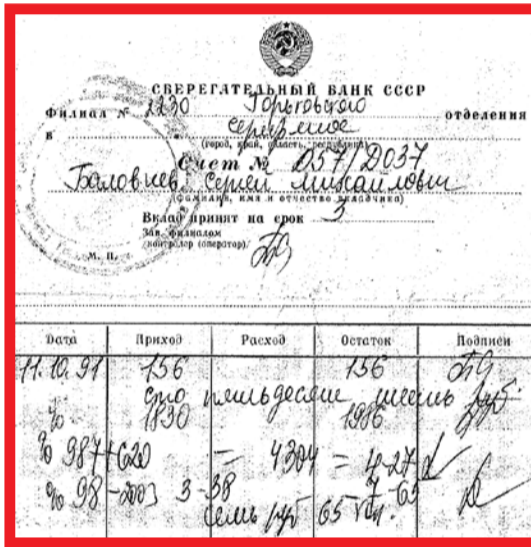 СБЕРЕГАТЕЛЬНЫЙ БАНК СССР
Филиал № 2230 Горьковского отделения
в
(город, край, область, республика)
Счет № 057/D037
Баловнев Сергей Михайлович
(фамилия, имя и отчество вкладчика)
Вклад принят на срок 3
Зав. филиалом
контролер (оператор)
М. П.
Дата Приход Расход Остаток Подписи
11.10.91 156 156
сто пятьдесят шесть руб
% 1830 1986
% 987+620 = 4304 = 4-27
% 98-2003 3-38 7-65
семь руб 65 коп.